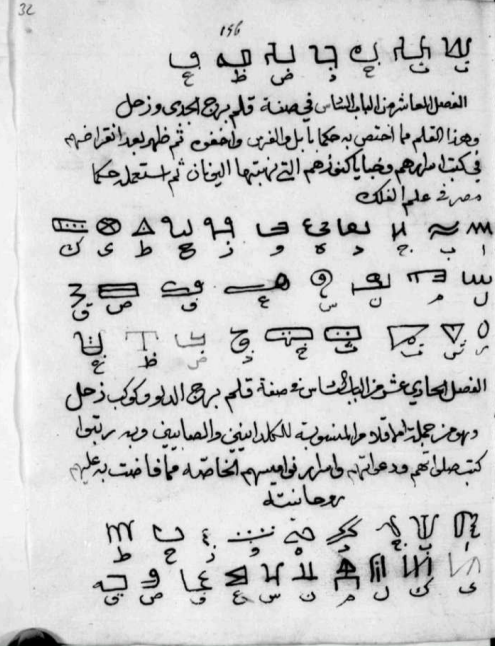 32
156
ت ث خ ذ ض ظ غ
الفصل العاشر من الباب في صفة قلم برج الجدي وزحل
وهذا القلم مما اختص به حكما بابل والفرس واخفوه ثم ظهر بعد انقراضهم
في كتب اسرارهم وخبايا كنوزهم التي نهبتها اليونان ثم استعمله حكما
مصر في علم الفلك
ا ب ج د ه و ز ح ط ى ك
ل م ن س ع ف ص ق
ر ش ت ث خ ذ ض ظ غ
الفصل الحادي عشر من الباب في صفة قلم برج الدلو وكوكب زحل
وهو من جملة الاقلام المنسوبة للكلدانيين والصابيين وبه رتبوا
كتب صلواتهم ودعواتهم واسرار نواميسهم الخاصه مما فاضت به عليهم
روحانيته
ا ب ج د ه و ز ح ط
ى ك ل م ن س ع ف ص ق